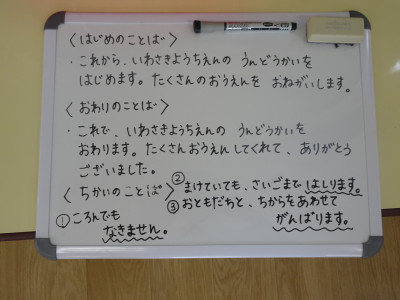 〈はじめのことば〉
・これから、いわさきようちえんの うんどうかいを
はじめます。たくさんのおうえんを おねがいします。
〈おわりのことば〉
・これで、いわさきようちえんの うんどうかいを
おわります。たくさんおうえんしてくれて、ありがとう
ございました。
〈ちかいのことば〉
①ころんでも
なきません。
②まけていても、さいごまで はしります。
③おともだちと、ちからをあわせて
がんばります。